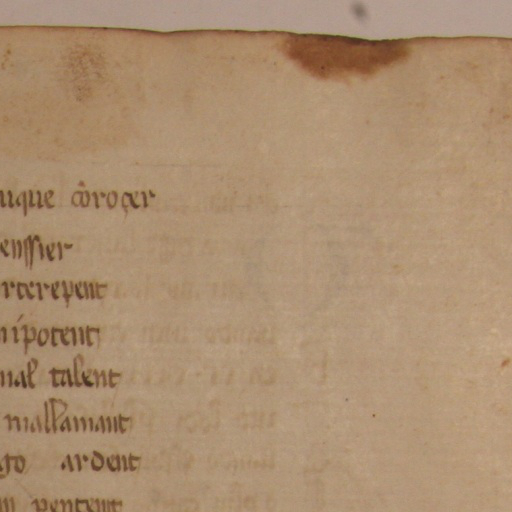 uque cōroçer
enssier
rterepent
nipotent
mal talent
mallamant
go ardent
pentent